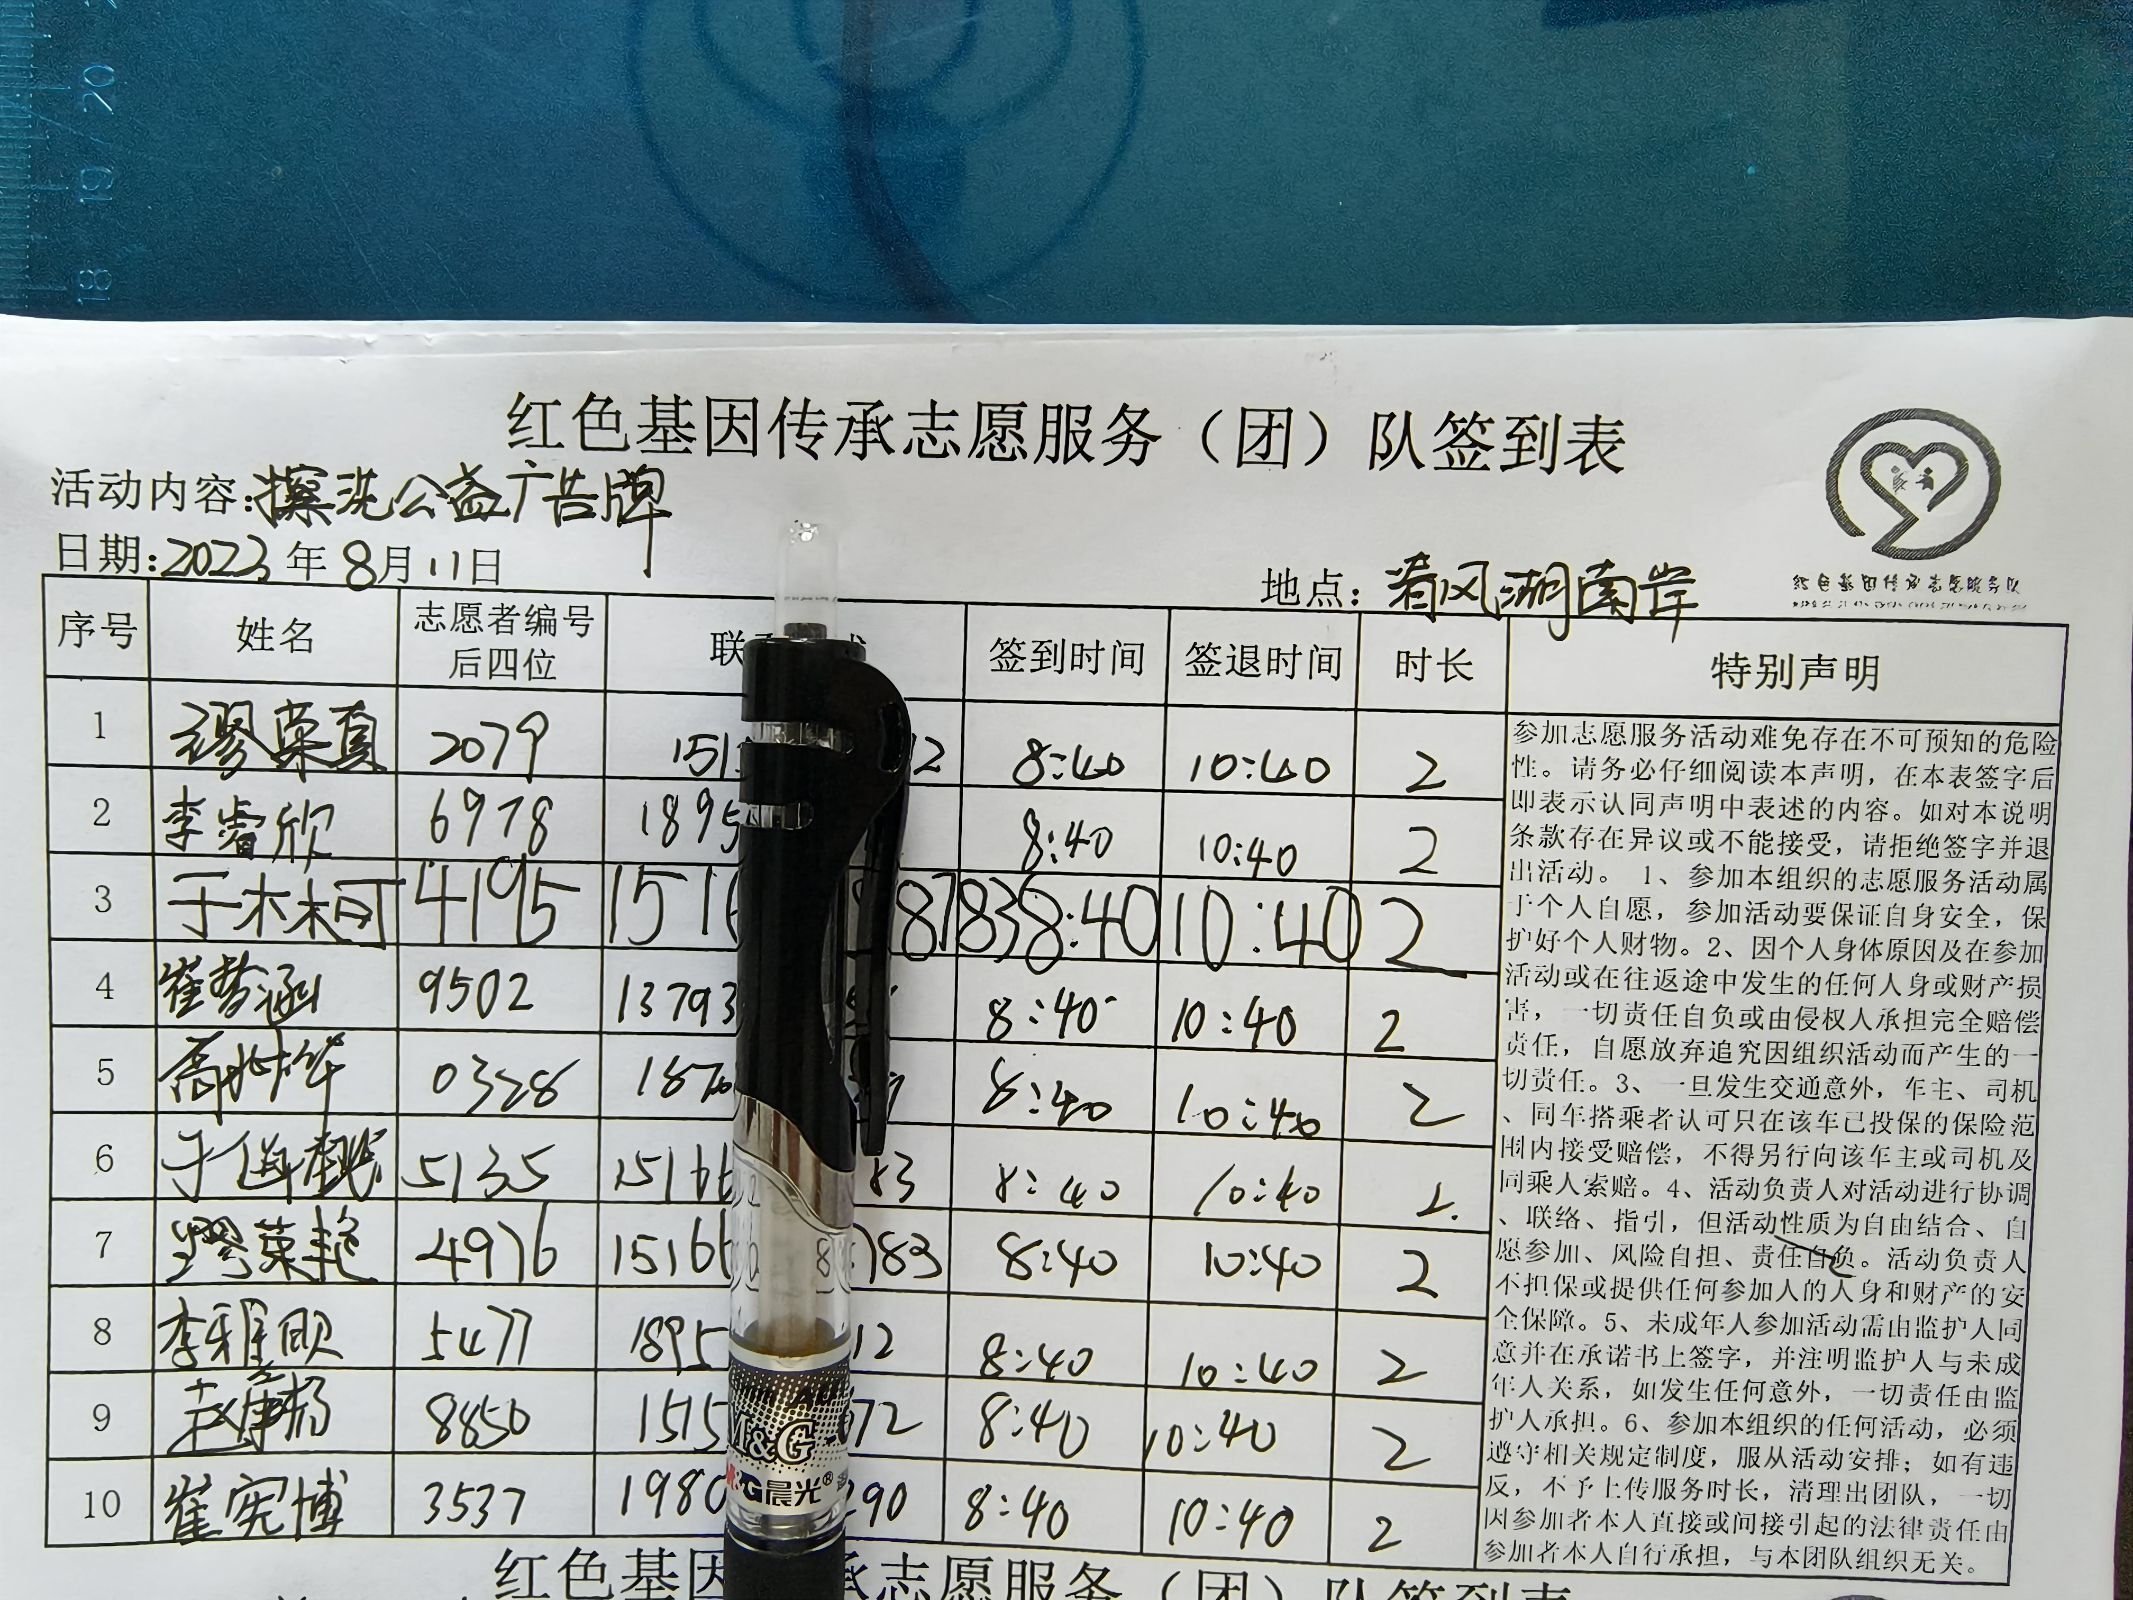 18 19 20
红色基因传承志愿服务（团）队签到表
活动内容:擦洗公益广告牌
日期:2023年8月11日
地点:清风湖南岸
红色基因传承志愿服务队
序号 姓名 志愿者编号后四位 联 签到时间 签退时间 时长 特别声明
1 缪荣真 2079 151 12 8:40 10:40 2
2 李睿欣 6978 1895 8:40 10:40 2
3 于木柯 4195 1516 8783 8:40 10:40 2
4 崔梦涵 9502 13793 8:40 10:40 2
5 0328 1870 8:40 10:40 2
6 5135 15166 83 8:40 10:40 2.
7 缪荣艳 4976 15166 783 8:40 10:40 2
8 李雅欣 5477 1895 12 8:40 10:40 2
9 赵康杨 8850 1515 72 8:40 10:40 2
10 崔宪博 3537 1980 290 8:40 10:40 2
参加志愿服务活动难免存在不可预知的危险
性。请务必仔细阅读本声明，在本表签字后
即表示认同声明中表述的内容。如对本说明
条款存在异议或不能接受，请拒绝签字并退
出活动。 1、参加本组织的志愿服务活动属
于个人自愿，参加活动要保证自身安全，保
护好个人财物。2、因个人身体原因及在参加
活动或在往返途中发生的任何人身或财产损
害，一切责任自负或由侵权人承担完全赔偿
责任，自愿放弃追究因组织活动而产生的一
切责任。3、一旦发生交通意外，车主、司机
、同车搭乘者认可只在该车已投保的保险范
围内接受赔偿，不得另行向该车主或司机及
同乘人索赔。4、活动负责人对活动进行协调
、联络、指引，但活动性质为自由结合、自
愿参加、风险自担、责任自负。活动负责人
不担保或提供任何参加人的人身和财产的安
全保障。5、未成年人参加活动需由监护人同
意并在承诺书上签字，并注明监护人与未成
年人关系，如发生任何意外，一切责任由监
护人承担。6、参加本组织的任何活动，必须
遵守相关规定制度，服从活动安排；如有违
反，不予上传服务时长，清理出团队，一切
因参加者本人直接或间接引起的法律责任由
参加者本人自行承担，与本团队组织无关。
M&G
M&G晨光®
红色基因 承志愿服务（团）队签到表